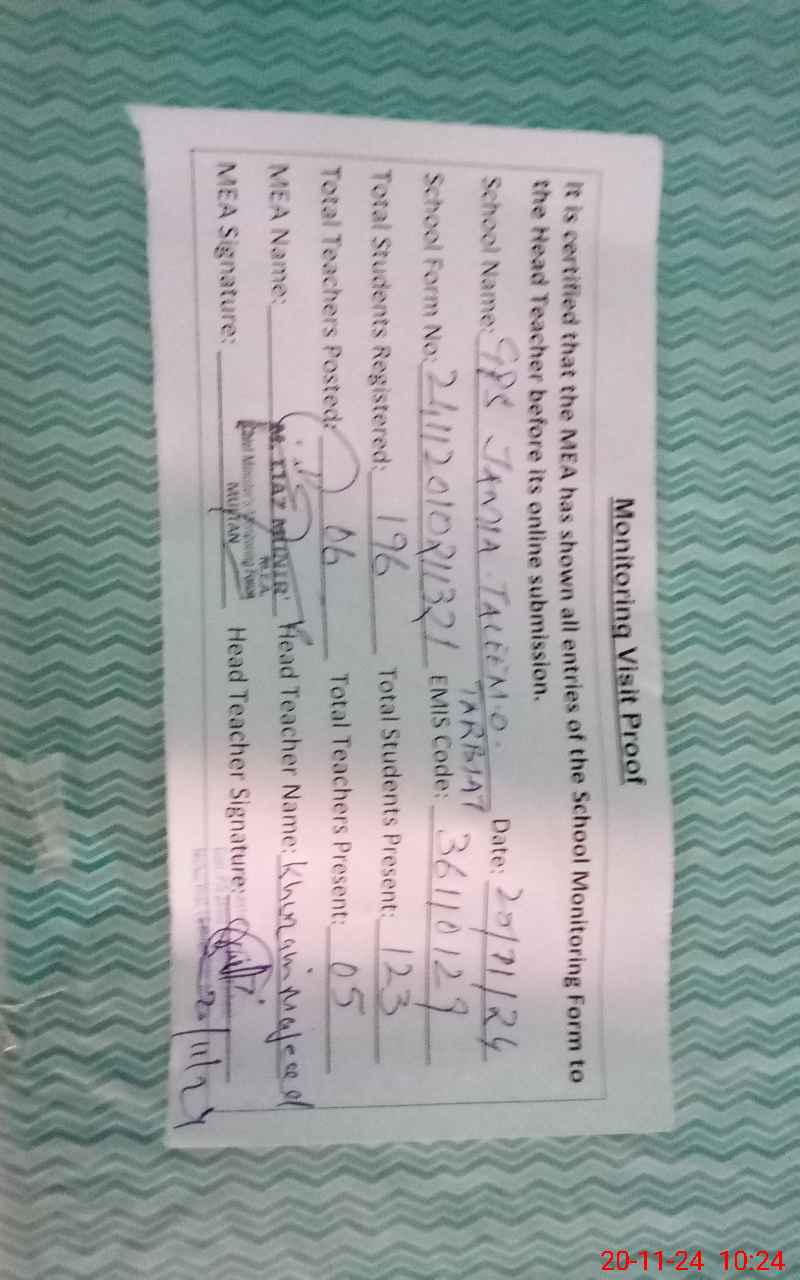 Monitoring Visit Proof
It is certified that the MEA has shown all entries of the School Monitoring Form to
the Head Teacher before its online submission.
School Name: GPS JAMIA TALEEM.O. Date: 20/11/24
TARBIAT
School Form No: EMIS Code: 36110129
Total Students Registered: 196 Total Students Present: 123
Total Teachers Posted: 06 Total Teachers Present: 05
MEA Name: Head Teacher Name: Khuram
M.E.A
MULTAN
MEA Signature: Head Teacher Signature:
20/11/24
20-11-24 10:24